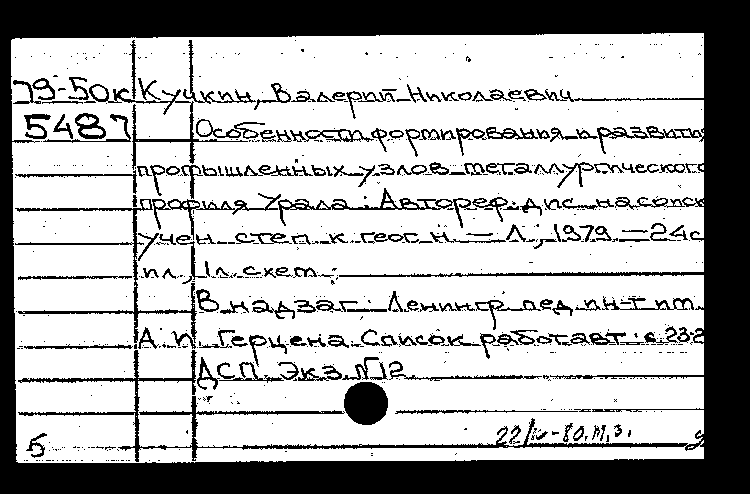 79-50к Кучкин, Валерий Николаевич
5487 Особенности формирования и развития
промышленных узлов металлургического
профиля Урала : Автореф. дис. на соиск.
учен. степ. к. геог. н. — Л., 1979. — 24 с
ил., 1 л. схем.
В надзаг.: Ленингр. пед. ин-т им.
А. И. Герцена. Список работ авт.: с. 23-2
ДСП. Экз. №12
22/IV-80. М, З.
Б